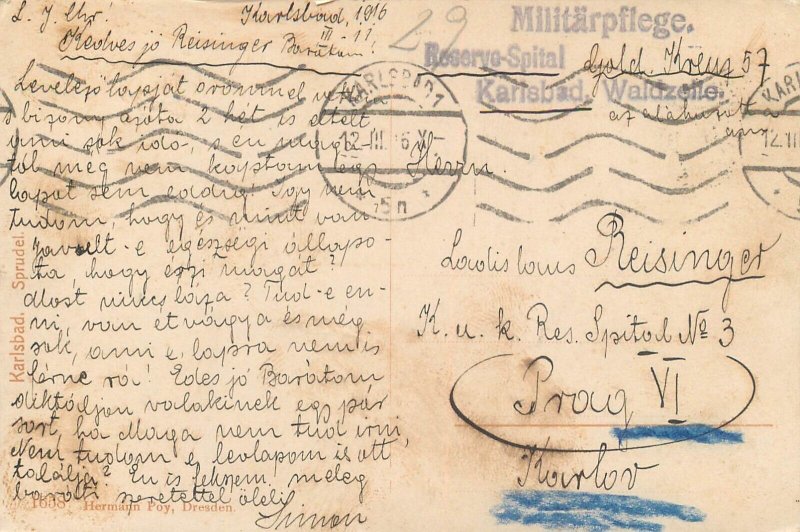 Karlsbad, 1916
III 11.
Kedves jó Reisinger Barátom!
Levelezőlapját örömmel
s bizony azóta 2 hét is eltelt
ami sok idő, s én
még nem kaptam egy
lapot sem eddig! Így nem
tudom, hogy és mint van
Javult-e egészségi állapo-
ta hogy érzi magát?
Most nincs láza? Tud-e en-
ni, van étvágya és még
sok, ami e lapra nem is
férne rá! Édes jó Barátom
diktáljon valakinek egy pár
sort, ha Maga nem tud írni,
Nem tudom e levlapom is ott
találja? Én is fekszem meleg
baráti szeretettel öleli
Simon
29
Militärpflege.
Reserve-Spital
Karlsbad, Waldzeile.
Gold. Kreuz 57
az aláhúzott a
KARLSBAD 1
12.III.16
5n
KARLS
12.III
Herrn
Ladislaus Reisinger
K. u. k. Res. Spital № 3
Prag VI
Karlov
Karlsbad. Sprudel.
1658 Hermann Poy, Dresden.